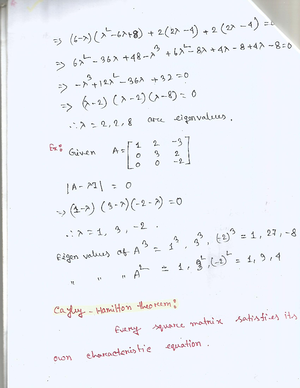 => (6-λ)(λ²-6λ+8) + 2(2λ-4) + 2(2λ-4) = 0
=> 6λ² - 36λ + 48 - λ³ + 6λ² - 8λ + 4λ - 8 + 4λ - 8 = 0
=> -λ³ + 12λ² - 36λ + 32 = 0
=> (λ-2) (λ-2) (λ-8) = 0
∴ λ = 2, 2, 8 are eigenvalues.
Ex: Given A = [1 2 -3
0 3 2
0 0 -2]
|A - λI| = 0
=> (1-λ) (3-λ) (-2-λ) = 0
∴ λ = 1, 3, -2.
Eigen values of A³ = 1³, 3³, (-2)³ = 1, 27, -8
" " " A² = 1, 3², (-2)² = 1, 9, 4
Cayley - Hamilton theorem:
Every square matrix satisfies its
own characteristic equation.